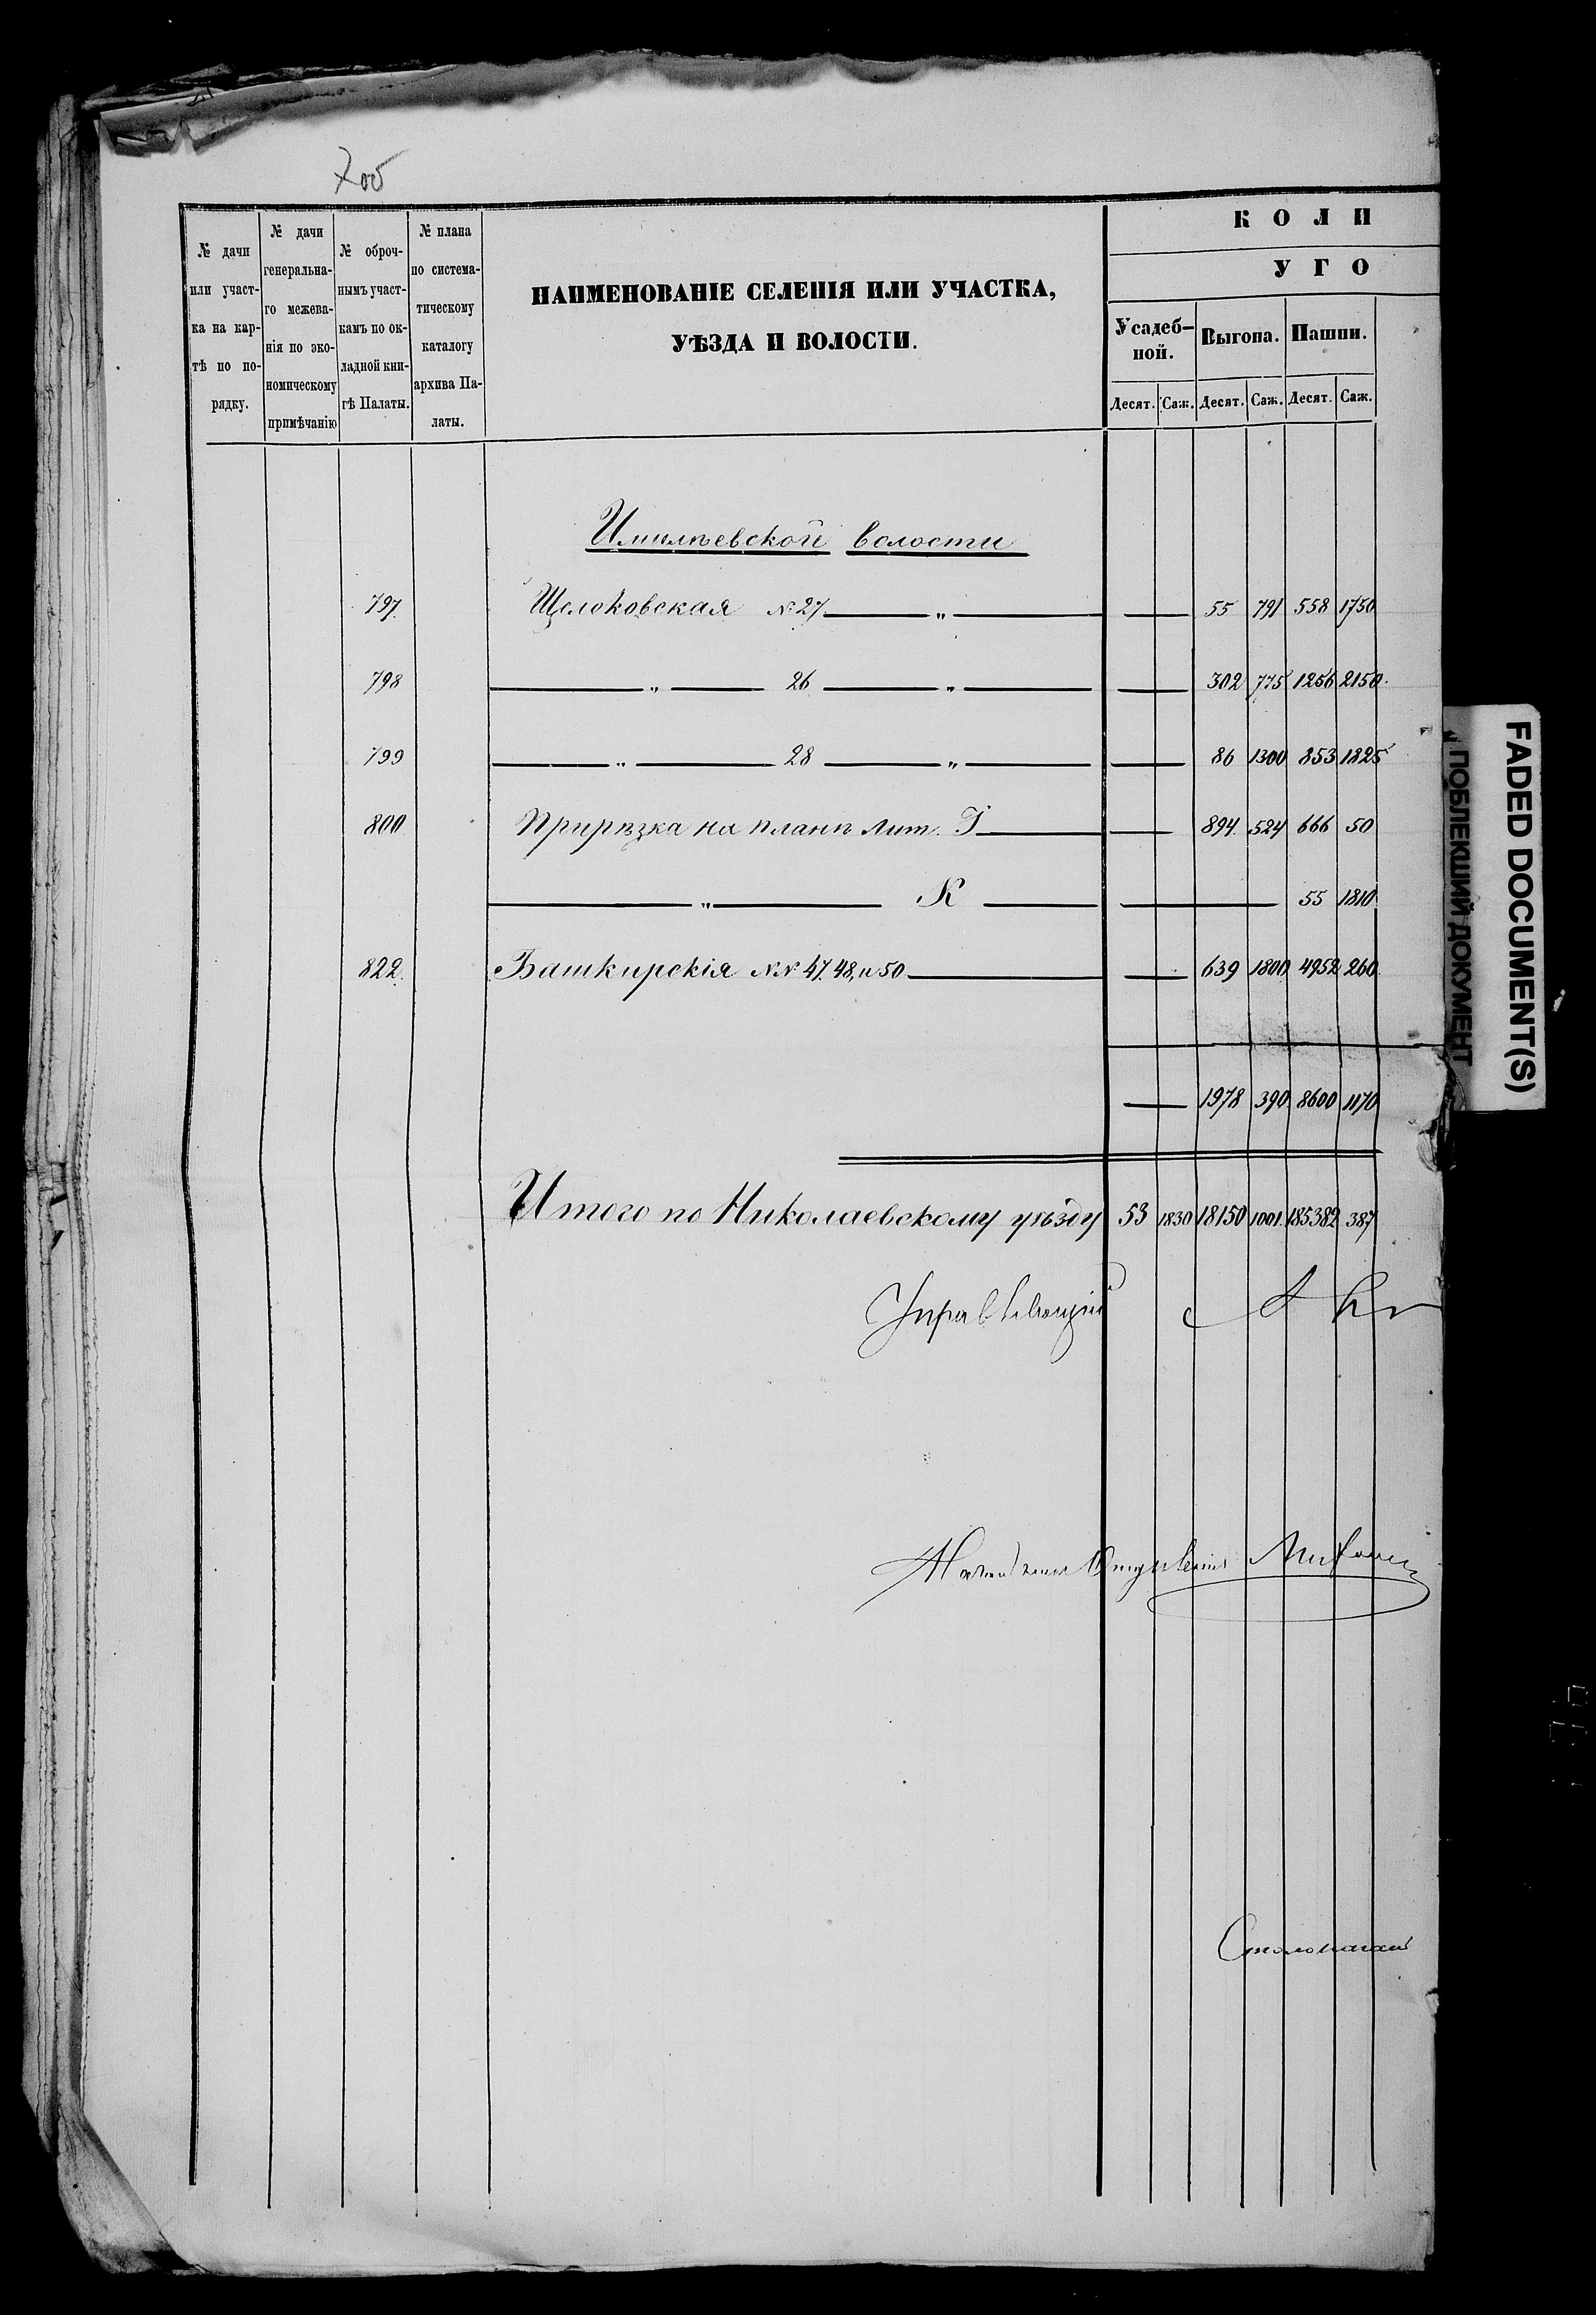 № дачи или участка на картѣ по порядку.
№ дачи генеральнаго межеванія по экономическому примѣчанію
№ оброчнымъ участкамъ по окладной книгѣ Палаты.
№ плана по систематическому каталогу архива Палаты.
НАИМЕНОВАНІЕ СЕЛЕНІЯ ИЛИ УЧАСТКА,
УѢЗДА И ВОЛОСТИ.
КОЛИ
УГО
Усадебной. Выгона. Пашни.
Десят. Саж. Десят. Саж. Десят. Саж.
волости
797. Щелоковская №27 — „ — 55 791 558 1750
798 — „ — 26 — „ — 302 775 1256 2150.
799 — „ — 28 — „ — 86 1300 853 1825
800 Прирѣзка на планѣ лит. — 894. 524 666 50
— „ — К — 55 1810
822. Башкирскія №№ 47. 48, и 50 — 639 1800 4952 260
— 1978 390 8600 1170
Итого по Николаевскому уѣзду 53 1830 18150 1001 185382 387
Управляющій
Отдѣленія
Столоначал
FADED DOCUMENT(S)
ПОБЛЕКШИЙ ДОКУМЕНТ